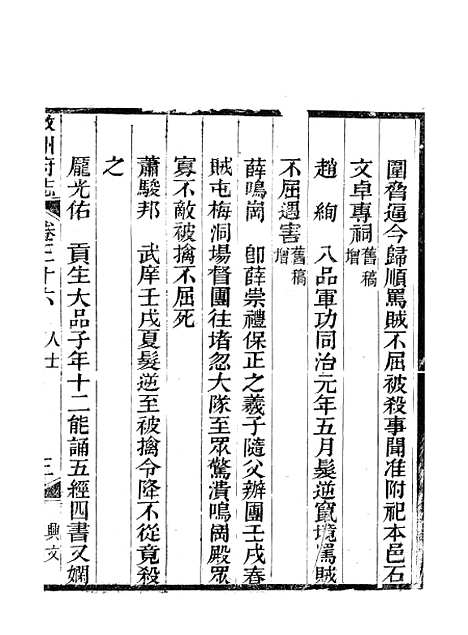 圍脅逼令歸順罵賊不屈被殺事聞准附祀本邑石
文卓專祠舊稿增
趙絢 八品軍功同治元年五月髮逆竄境罵賊
不屈遇害舊稿增
薛鳴崗 卽薛崇禮保正之義子隨父辦團壬戌春
賊屯梅洞塲督團往堵忽大隊至眾驚潰鳴崗殿眾
寡不敵被擒不屈死
蕭駿邦 武庠壬戌夏髮逆至被擒令降不從竟殺
之
龐光佑 貢生大品子年十二能誦五經四書又嫻
敘州府志 卷三十六 人士 三 興文